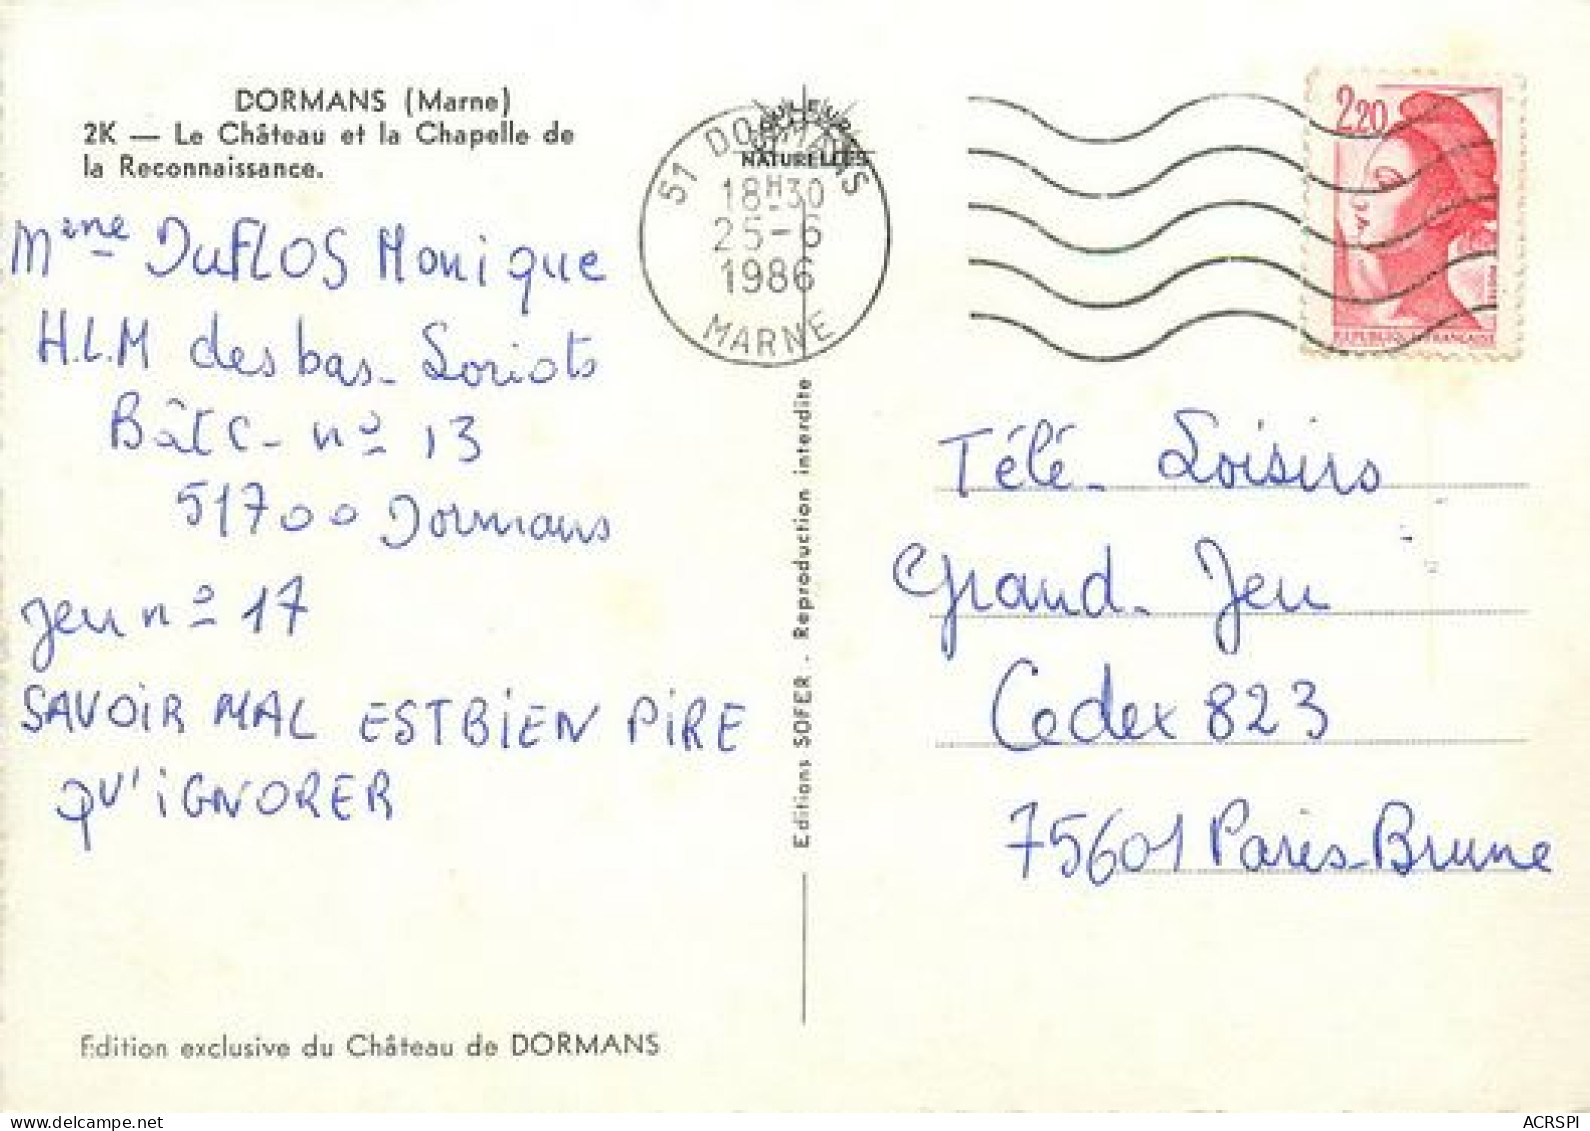 DORMANS (Marne)
2K — Le Château et la Chapelle de
la Reconnaissance.
Mme DUFLOS Monique
H.L.M des bas-Loriots
Bât C- nº 13
51700 Dormans
jeu nº 17
SAVOIR MAL EST BIEN PIRE
QU'IGNORER
Edition exclusive du Château de DORMANS
51 DORMANS
NATURELLES
18H30
25-6
1986
MARNE
Editions SOFER. Reproduction interdite
2,20
REPUBLIQUE FRANÇAISE
Télé-Loisirs
Grand-Jeu
Cedex 823
75601 Paris-Brune
ACRSPI